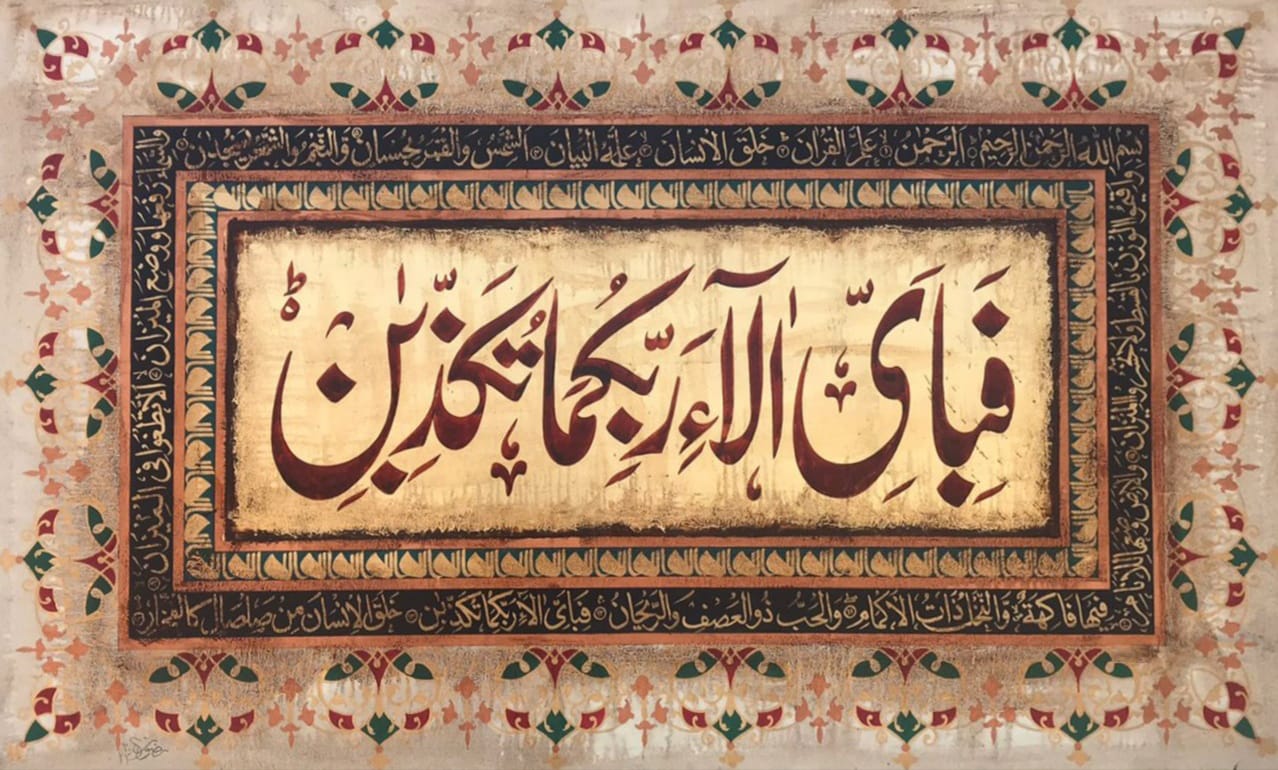 فَبِأَيِّ اٰلَآءِ رَبِّكُمَا تُكَذِّبٰنِ ؕ
بسم الله الرحمن الرحيم الرحمن علم القرآن خلق الانسان علمه البيان الشمس والقمر بحسبان والنجم والشجر يسجدن
والسماء رفعها ووضع الميزان الا تطغوا في الميزان
واقيموا الوزن بالقسط ولا تخسروا الميزان والارض وضعها للانام
فيها فاكهة والنخل ذات الاكمام والحب ذو العصف والريحان فباي الاء ربكما تكذبن خلق الانسان من صلصال كالفخار